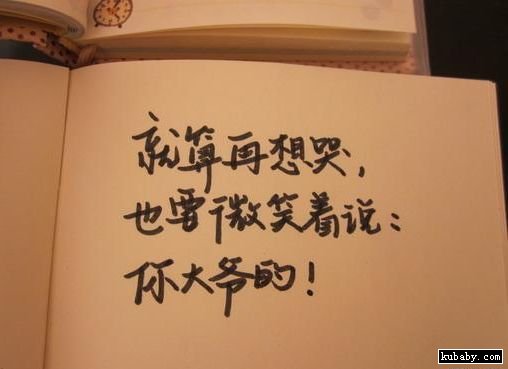 就算再想哭，
也要微笑着说：
你大爷的！
kubaby.com